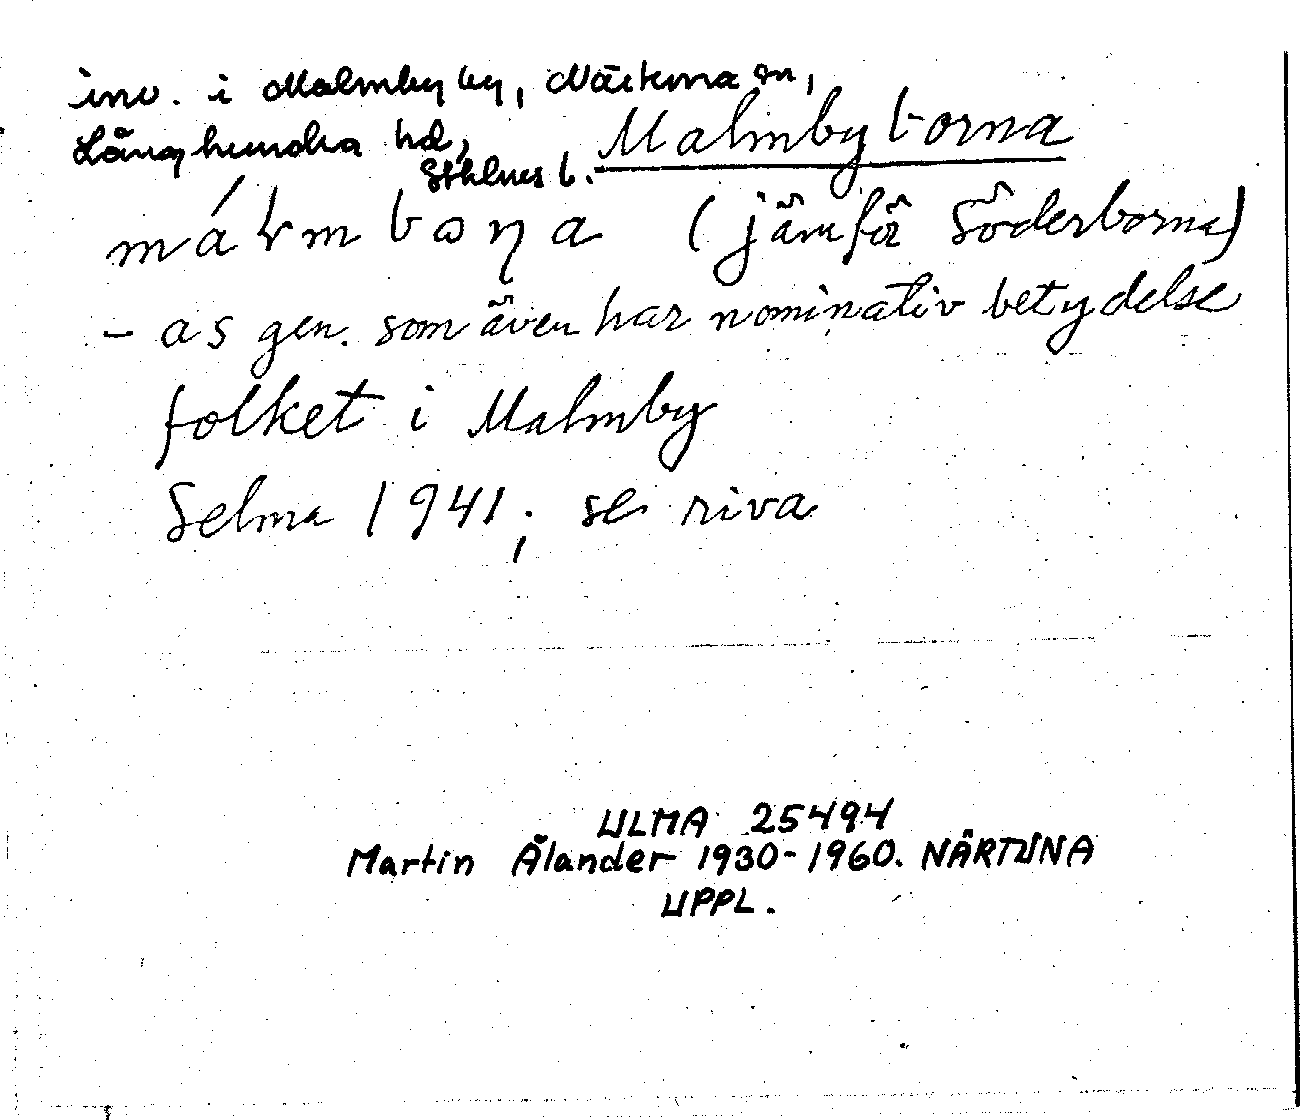 inv. i Malmby by, Närtuna sn,
Långhundra hd,
Sthlms l.
Malmbyborna
máɫmboɳa (jämför Söderborna)
– as gen. som även har nominativ betydelse
folket i Malmby
Selma 1941; se riva
ULMA 25494
Martin Ålander 1930-1960. NÄRTUNA
UPPL.